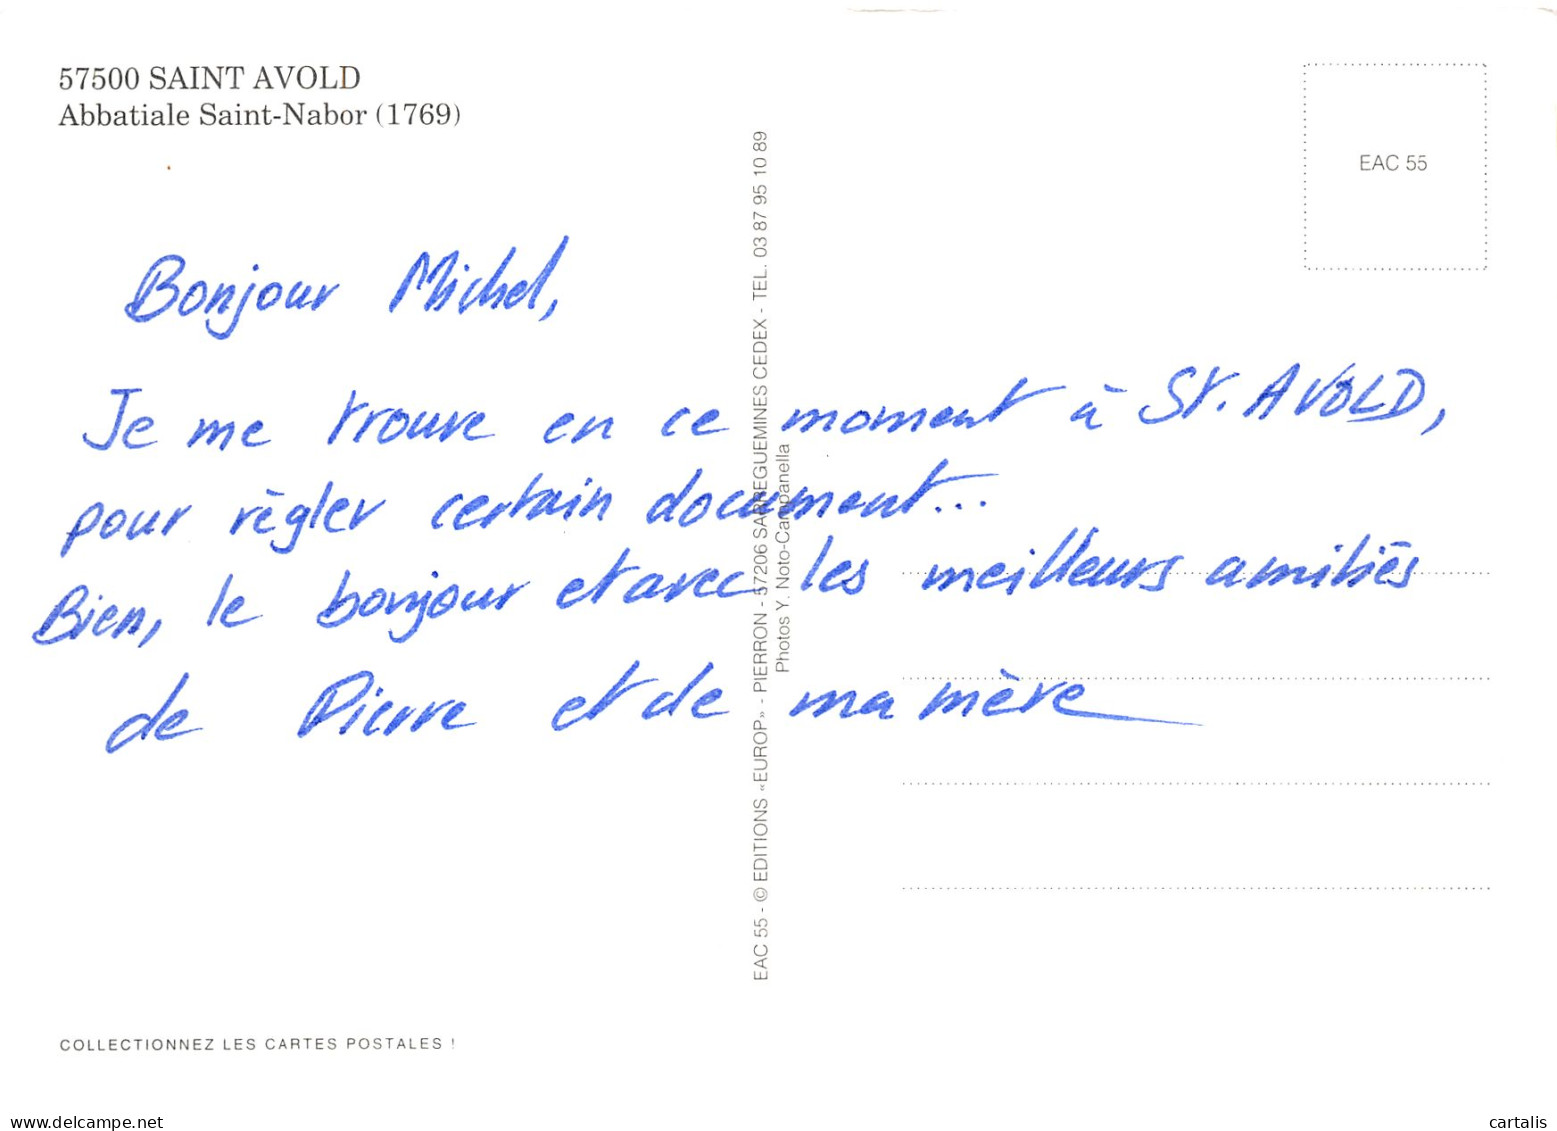 57500 SAINT AVOLD
Abbatiale Saint-Nabor (1769)
EAC 55
Bonjour Michel,
Je me trouve en ce moment à St. AVOLD,
pour règler certain document...
Bien, le bonjour et avec les meilleurs amitiés
de Pierre et de ma mère
EAC 55 - © EDITIONS «EUROP» - PIERRON - 57206 SARREGUEMINES CEDEX - TEL. 03 87 95 10 89
Photos Y. Noto-Campanella
COLLECTIONNEZ LES CARTES POSTALES !
www.delcampe.net
cartalis